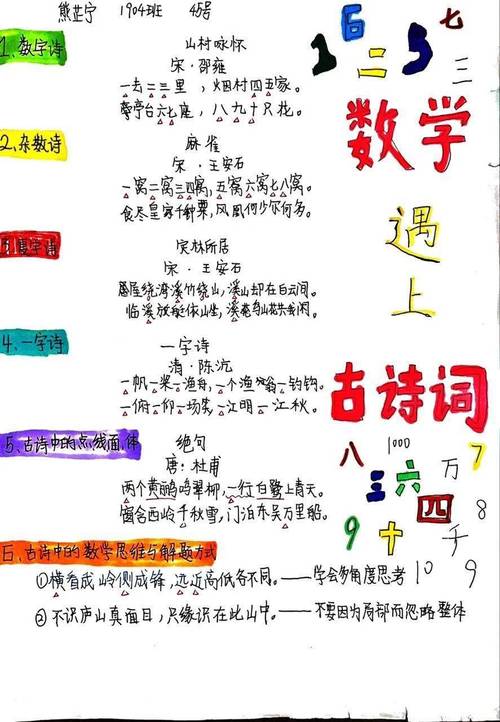 熊芷宁 1904班 45号
1、数字诗
山村咏怀
宋·邵雍
一去二三里，烟村四五家。
亭台六七座，八九十只花。
2、杂数诗
麻雀
宋·王安石
一窝二窝三四窝，五窝六窝七八窝。
食尽皇家千种粟，凤凰何少尔何多。
复字诗
林所居
宋·王安石
屋绕湾溪竹绕山，溪山却在白云间。
临溪放艇依山坐，溪山花共我闲。
4、一字诗
一字诗
清·陈沆
一帆一桨一渔舟，一个渔翁一钓钩。
一俯一仰一场笑，一江明一江秋。
5、古诗中的点线面、体
绝句
唐：杜甫
两个黄鹂鸣翠柳，一行白鹭上青天。
窗含西岭千秋雪，门泊东吴万里船。
6、古诗中的数学思维与解题方式
①横看成岭侧成锋，远近高低各不同。——学会多角度思考
②不识庐山真面目，只缘识在此山中。——不要因为局部而忽略整体
1 6 二 5 七 三
数学
遇
上
古诗词
八 1000 7
三 六 万
9 十 四 8
千
10 9